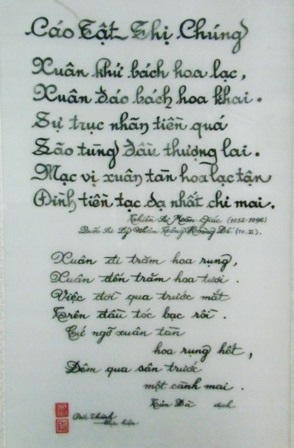 Cáo Tật Thị Chúng
Xuân khứ bách hoa lạc,
Xuân đáo bách hoa khai.
Sự trục nhãn tiền quá
Lão tùng đầu thượng lai.
Mạc vị xuân tàn hoa lạc tận
Đình tiền tạc dạ nhất chi mai.
Thiền Sư Mãn Giác (1052-1096)
Xuân đi trăm hoa rụng,
Xuân đến trăm hoa tươi.
Việc đời qua trước mắt
Trên đầu tóc bạc rồi.
Cứ ngỡ xuân tàn
hoa rụng hết,
Đêm qua sân trước
một cành mai.
dịch